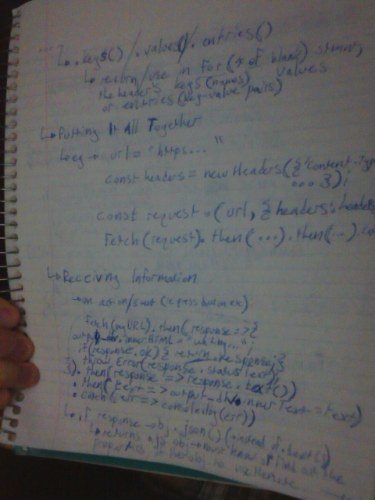 ↳ .keys() / .values() / .entries()
↳ return/use in for (* of blank) shows
the headers keys (names) values
or entries (key-value pairs)
↳ Putting It All Together
↳ eg → url = "https..."
const headers = new Headers({'Content-Type
... });
const request = (url, { headers: headers
fetch(request).then(...).then(...).ca
↳ Receiving Information
→ on action/event
fetch(myURL).then(response => {
.innerHTML = "waiting...";
if(response.ok) { return response; }
throw Error(response.statusText)
}).then(response => response.text())
.then(text => outputdiv.innerText = text)
.catch(err => console.log(err))
↳ if response → obj → .json() (instead of .text())
↳ returns a JS obj → must know
properties of